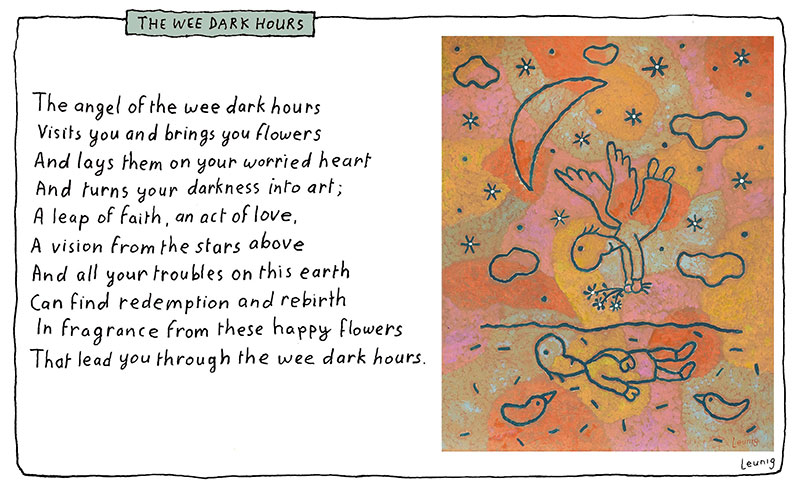 THE WEE DARK HOURS
The angel of the wee dark hours
Visits you and brings you flowers
And lays them on your worried heart
And turns your darkness into art;
A leap of faith, an act of love,
A vision from the stars above
And all your troubles on this earth
Can find redemption and rebirth
In fragrance from these happy flowers
That lead you through the wee dark hours.
Leunig
Leunig